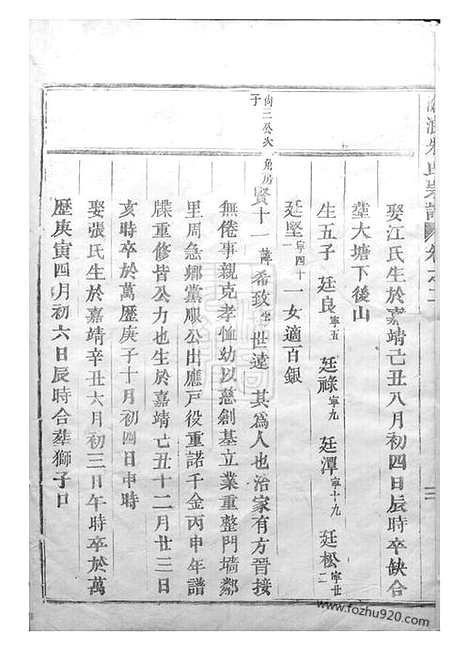 娶江氏生於嘉靖己丑八月初四日辰時卒缺合
塟大塘下後山
生五子 廷良寧五 廷祿寧九 廷潭寧十九 廷松寧廿二
廷堅寧四十一 一女適百銀
尚三公次子 兔房 賢十一 諱希玫字世遠 其為人也治家有方晉接
無倦事親克孝恤幼以慈創基立業重整門墻鄰
里周急鄉黨服公出應戶役重諾千金丙申年譜
牒重修皆公力也生於嘉靖己丑十二月廿三日
亥時卒於萬歷庚子十月初四日申時
娶張氏生於嘉靖辛丑六月初三日午時卒於萬
歷庚寅四月初六日辰時合塟獅子口
www.fozhu920.com